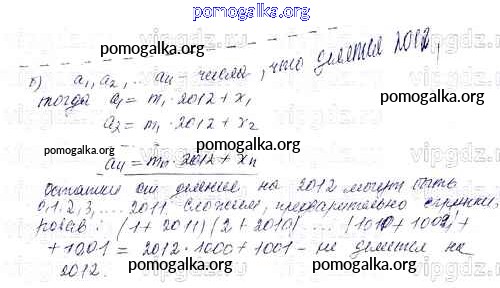 pomogalka.org
б) a₁, a₂, ... aₙ - числа, что делятся 2012,
тогда a₁ = m₁ · 2012 + x₁
pomogalka.org
a₂ = m₁ · 2012 + x₂
pomogalka.org
aₙ = mₙ · 2012 + xₙ
Остатки от деления на 2012 могут быть
0, 1, 2, 3, .... 2011. Сложим, предварительно сгруппи
ровав: (1 + 2011) (2 + 2010) .... (1010 + 1002) +
+ 1001 = 2012 · 1000 + 1001 - не делится на
2012.
pomogalka.org
pomogalka.org